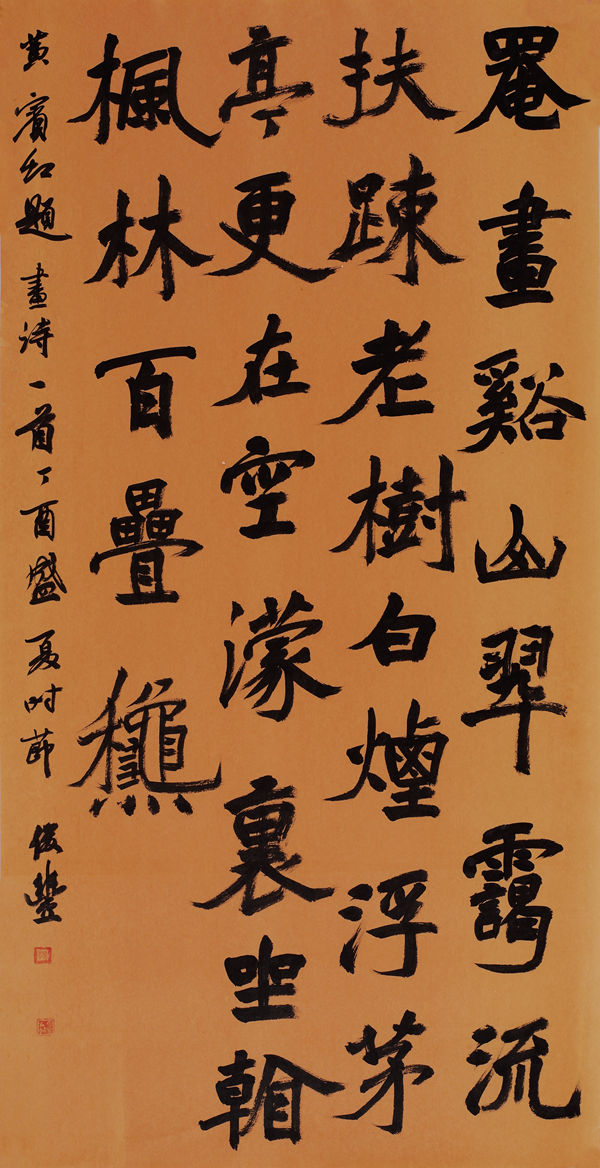 罨畫谿山翠靄流
扶踈老樹白煙浮茅
亭更在空濛裏坐
楓林百疊龝
黃賓虹題畫詩一首丁酉盛夏时節俊豐